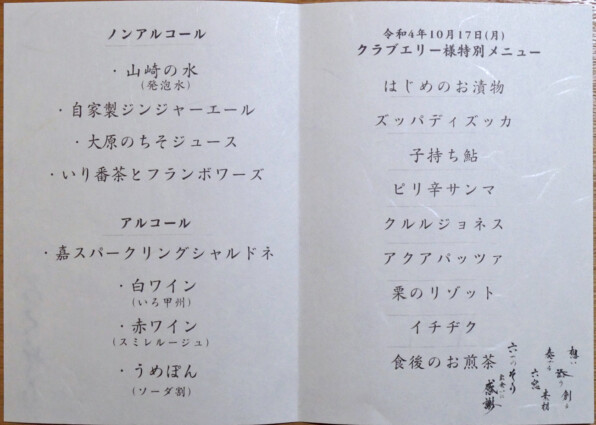 ノンアルコール
・山崎の水
(発泡水)
・自家製ジンジャーエール
・大原のちそジュース
・いり番茶とフランボワーズ
アルコール
・嘉スパークリングシャルドネ
・白ワイン
(いろ甲州)
・赤ワイン
(スミレルージュ)
・うめぽん
(ソーダ割)
令和4年10月17日(月)
クラブエリー様特別メニュー
はじめのお漬物
ズッパディズッカ
子持ち鮎
ピリ辛サンマ
クルルジョネス
アクアパッツァ
栗のリゾット
イチヂク
食後のお煎茶
想い
創る
素材
感謝